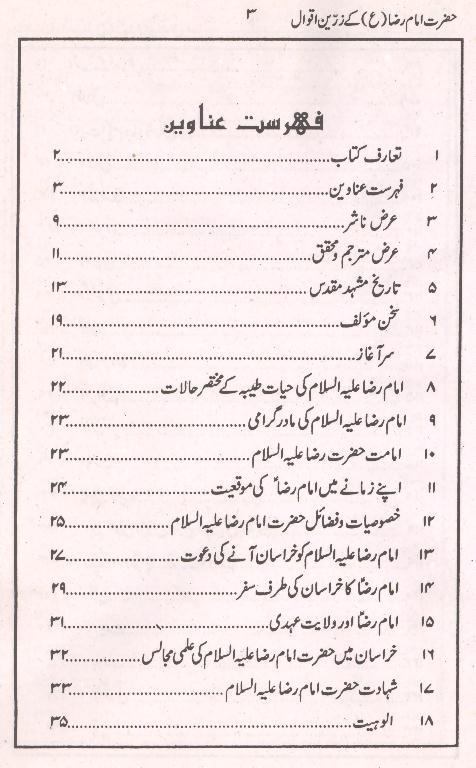 حضرت امام رضا (ع) کے زرّین اقوال ۳
فہرست عناوین
۱ تعارف کتاب ۲
۲ فہرست عناوین ۳
۳ عرض ناشر ۹
۴ عرض مترجم و محقق ۱۱
۵ تاریخ مشہد مقدس ۱۳
۶ سخن مؤلف ۱۹
۷ سر آغاز ۲۱
۸ امام رضا علیہ السلام کی حیات طیبہ کے مختصر حالات ۲۲
۹ امام رضا علیہ السلام کی مادر گرامی ۲۳
۱۰ امامت حضرت رضا علیہ السلام ۲۳
۱۱ اپنے زمانے میں امام رضاؑ کی موقعیت ۲۴
۱۲ خصوصیات و فضائل حضرت امام رضا علیہ السلام ۲۵
۱۳ امام رضا علیہ السلام کو خراسان آنے کی دعوت ۲۷
۱۴ امام رضاؑ کا خراسان کی طرف سفر ۲۹
۱۵ امام رضاؑ اور ولایت عہدی ۳۱
۱۶ خراسان میں حضرت امام رضا علیہ السلام کی علمی مجالس ۳۲
۱۷ شہادت حضرت امام رضا علیہ السلام ۳۳
۱۸ الوہیت ۳۵